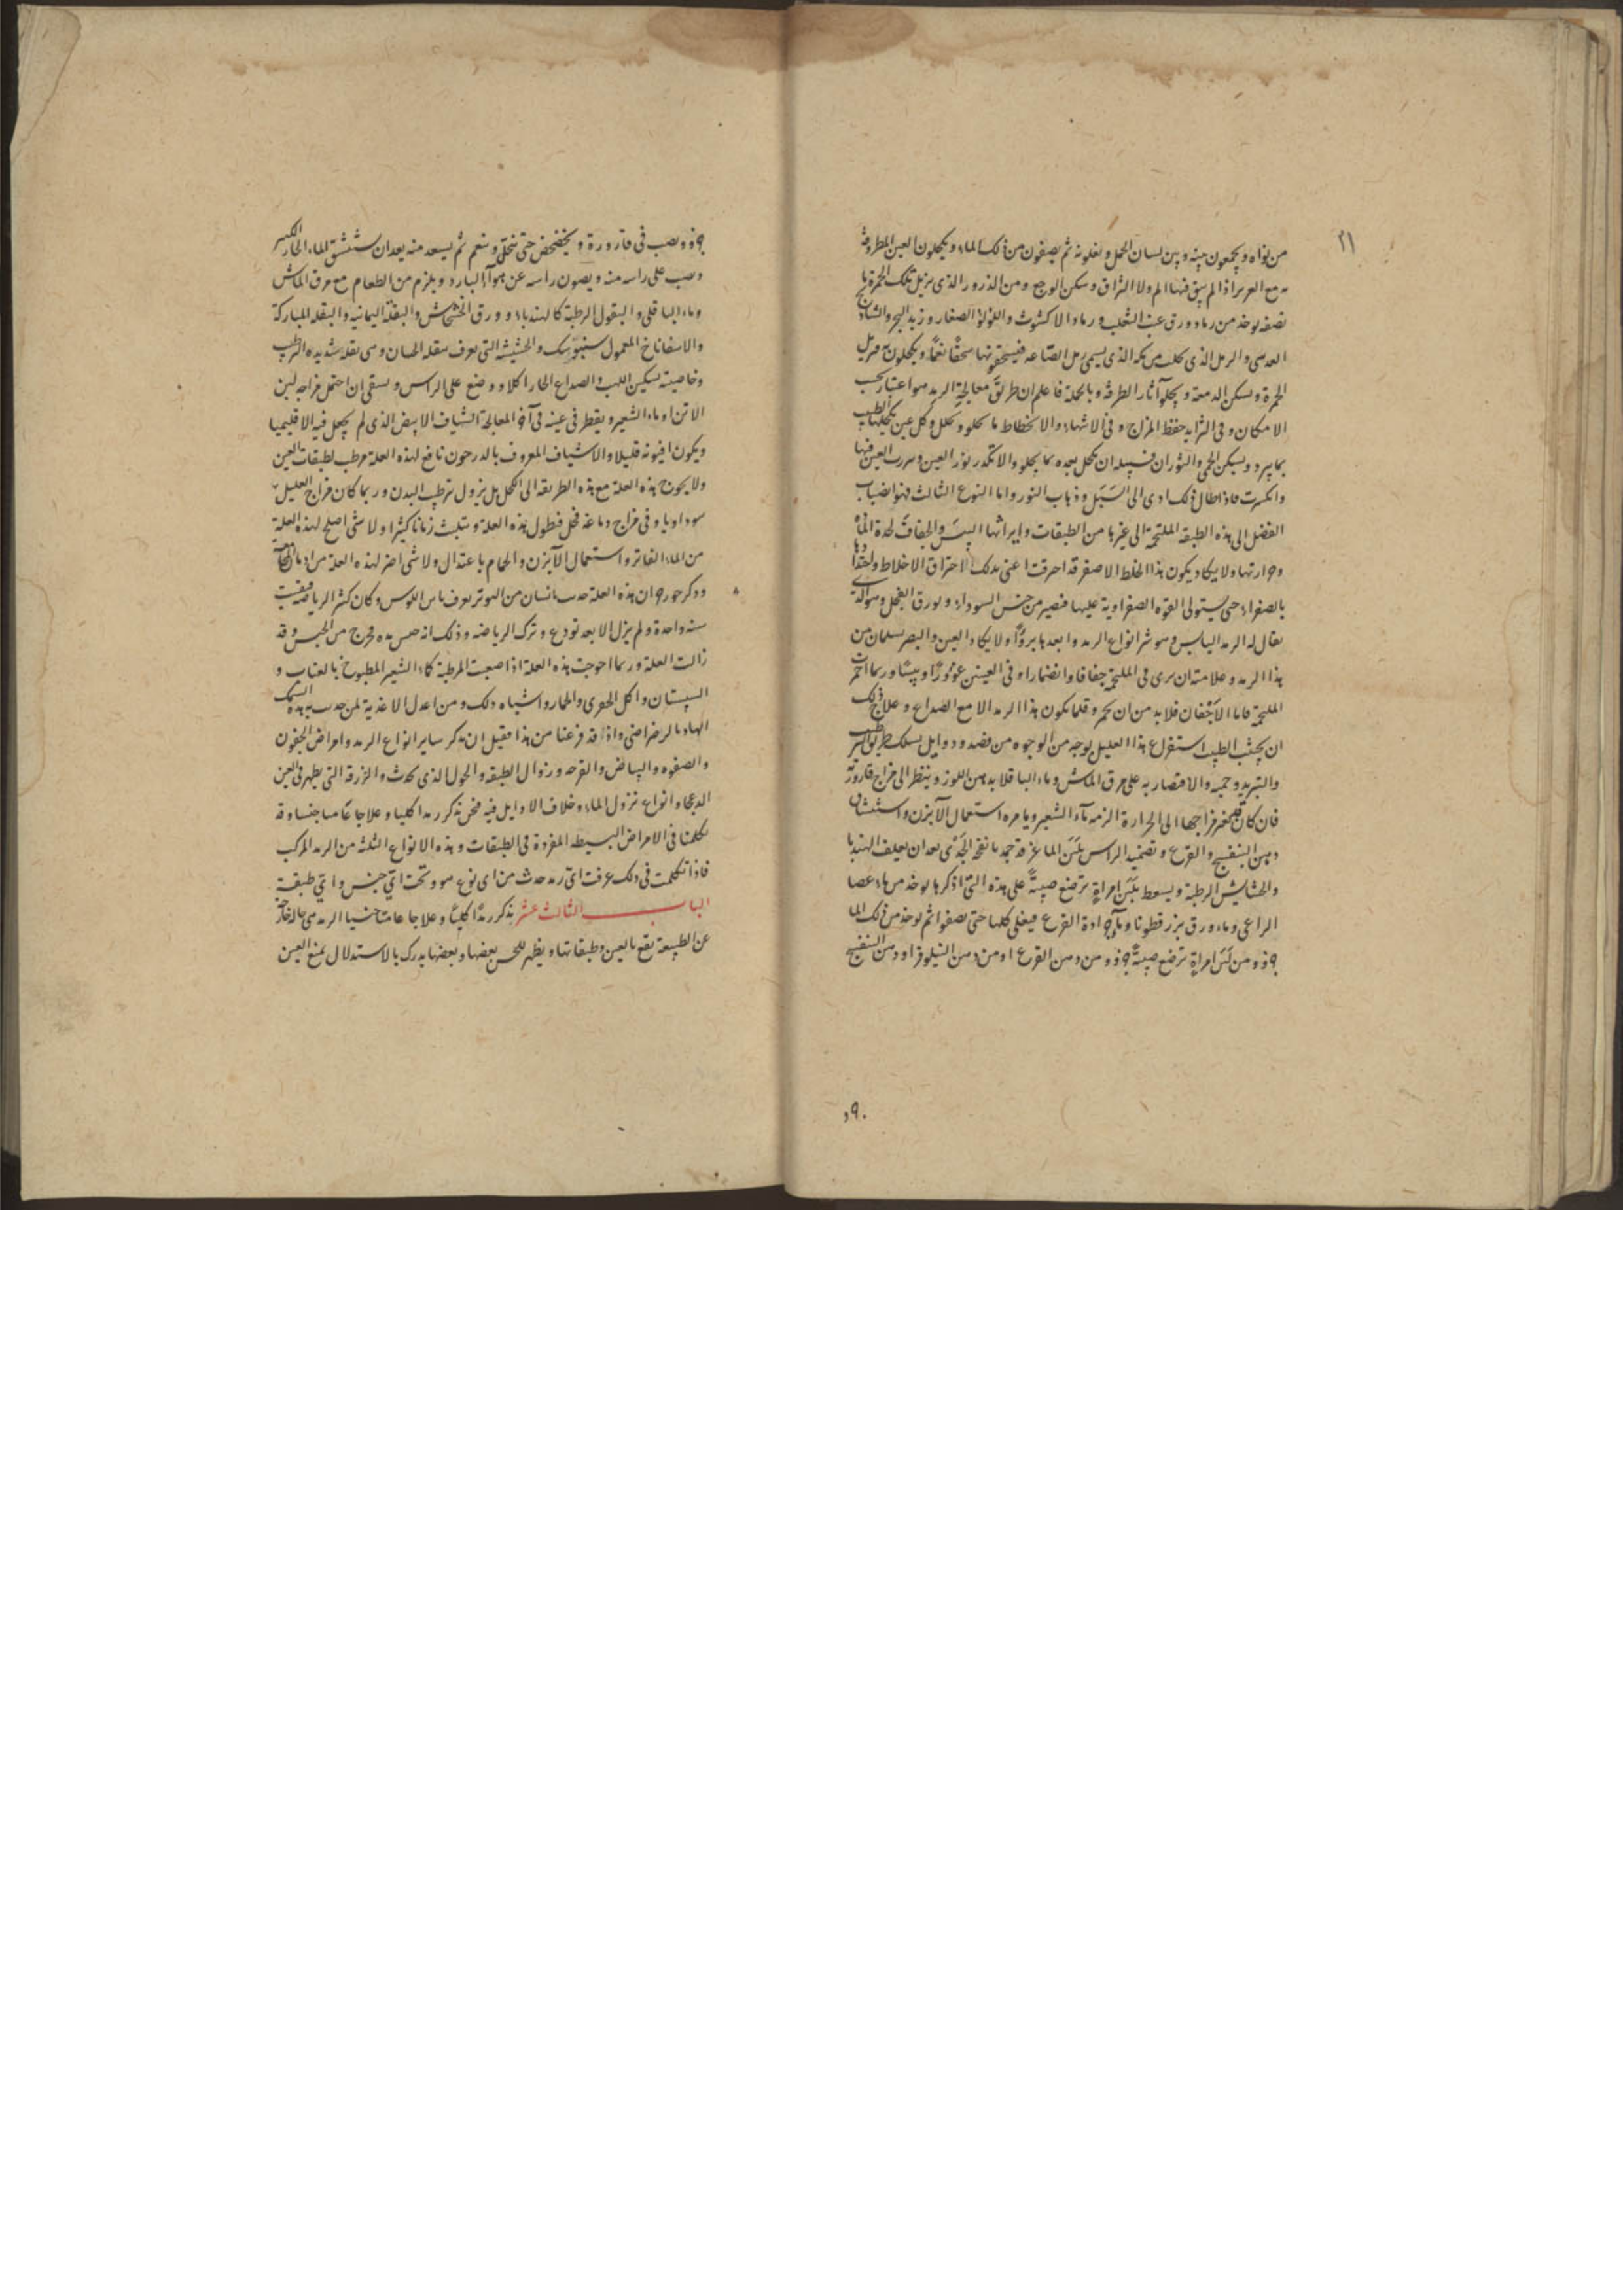 ٢١
من نواه ويجمعون بينه وبين لسان الحمل ويغلونه ثم يصفون من ذلك الماء ويكحلون العين المطروفة
اذا لم يبق فيها الم ولا التزاق وسكن الوجع ومن الذرور الذى يزيل تلك الحمرة
نصفه يوخذ من رماد ورق عنب الثعلب ورماد الاكشوث واللؤلؤ الصغار وزبد البحر والشادنج
العدسى والرمل الذى يجلب من مكة الذى يسمى رمل فيسحقونها سحقا نعما ويكحلون به فيزيل
الحمرة ويسكن الدمعة ويجلو آثار الطرفة وبالجملة فاعلم ان طريق معالجة الرمد هو اعتبار
الامكان وفى التزايد حفظ المزاج وفى الانتهاء والانحطاط ما يحلو ويحلل وكل عين يكحلها الطبيب
بما يبرد ويسكن الحمى والثوران فسبيله ان يكحل بعده بما يجلو والا تكدر نور العين
وانكسرت فاذا طال ذلك ادى الى السبل وذهاب النور واما النوع الثالث فهو انصباب
الفضل الى هذه الطبقة الملتحمة الى غيرها من الطبقات وايراثها اليبس والجفاف لحدة المادة
وحرارتها ولا يكاد يكون هذا الخلط الا صفر قد احرقت اعنى بذلك الاحتراق الاخلاط
بالصفراء حتى يستولى القوة الصفراوية عليها فتصير من جنس السوداء
يقال له الرمد اليابس وهو شر انواع الرمد وابعدها برؤًا ولا يكاد العين والبصر يسلمان من
هذا الرمد وعلامته ان يرى فى الملتحمة جفافا وانضمارا وفى العينين غؤورًا ويبسًا وربما احمرت
الملتحمة فاما الاجفان فلا بد من ان يحمر وقلما يكون هذا الرمد الا مع الصداع وعلاج ذلك
ان يجتنب الطبيب استفراغ هذا العليل بوجه من الوجوه من فصد ودواء بل يسلك طريق الترطيب
والتبريد وحميه والاقتصار به على مرق الماش وماء الباقلا بدهن اللوز وينظر الى مزاج قارورته
فان كان قد تغير مزاجها الى الحرارة الزمه ماء الشعير ويامره استعمال الآبزن واستنشاق
دهن البنفسج والقرع وتضميد الراس بلبن الماعز قد جمد بانفحة الجدى بعد ان يعلف الهندبا
والحشايش الرطبة ويسعط بلبن امراةٍ ترضع صبيةً على هذه التى اذكرها يوخذ من ماء عصا
الراعى وماء ورق بزرقطونا وماء جرادة القرع فيغلى كلها حتى يصفوا ثم يوخذ من ذلك الماء
جزؤ ومن لبن امراةٍ ترضع صبيةً جزؤ ومن دهن القرع او من دهن النيلوفر او دهن البنفسج
جزؤ ويصب فى قارورة ويخضخض حتى ينحل وينعم ثم يسعط منه بعد ان يستنشق الماء الحار الكثير
ويصب على راسه منه ويصون راسه عن هواء البارد ويلزم من الطعام مع مرق الماش
وماء الباقلى والبقول الرطبة كالهندباء وورق الخشخاش والبقلة اليمانية والبقلة المباركة
والاسفاناخ المعمول والحشيشة التى تعرف وهى بقلة شديدة الترطيب
وخاصيته تسكين اللهب والصداع الحار اكلا ووضع على الراس ويسقى ان احتمل مزاجه لبن
الاتن او ماء الشعير ويقطر فى عينه فى آخر المعالجة الشياف الابيض الذى لم يجعل فيه الاقليميا
ويكون افيونه قليلا والاشياف المعروف نافع لهذه العلة مرطب لطبقات العين
ولا يحوج هذه العلة مع هذه الطريقة الى الكحل بل يزول بترطيب البدن وربما كان مزاج العليل
سوداويا وفى مزاج دماغه فحل فيطول هذه العلة ويتلبث زمانا كثيرا ولا شئ اصلح لهذه العلة
من الماء الفاتر واستعمال الآبزن والحمام باعتدال ولا شئ اضر لهذه العلة من ادمان
وذكر ان هذه العلة حدثت بانسان وكان كثير الرياضة فبقيت
سنة واحدة ولم يزل الا بعد تودع وترك الرياضة وذلك انه حبس مدة فخرج من الحبس وقد
زالت العلة وربما احوجت هذه العلة اذا صعبت المرطبة كماء الشعير المطبوخ بالعناب و
السبستان واكل الجدى والخيار واشباه ذلك ومن اعدل الاغذية لمن حدث به هذه السمك
واذا قد فرغنا من هذا فقبل ان نذكر ساير انواع الرمد وامراض الجفون
والبياض والقرحة وزوال الطبقة والحول الذى يحدث والزرقة التى يظهر فى العين
وانواع نزول الماء وخلاف الاوايل فيه فنحن نذكر رمدا كليا وعلاجا عاميا جنسيا وقد
تكلمنا فى الامراض البسيطة المفردة فى الطبقات وهذه الانواع الثلثة من الرمد المركب
فاذا تكلمت فى ذلك عرفت اى رمد حدث من اى نوع هو وتحت اى جنس واى طبقة
الباب الثالث عشر نذكر رمدًا كليًا وعلاجا عاميا جنسيا الرمد هى حالة خارجة
عن الطبيعة يقع بالعين وطبقاتها ويظهر للحس بعضها وبعضها يدرك بالاستدلال يمنع العين